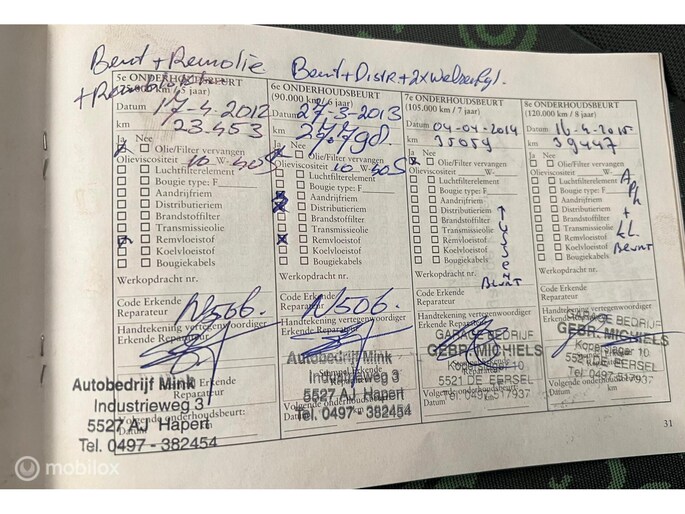 Beurt + Remolie
Beurt + Distr + 2x
5e ONDERHOUDSBEURT
Datum 17-4-2012
km 23.453
Ja Nee
Olie/Filter vervangen
Olieviscositeit 10 W-40S
Luchtfilterelement
Bougie type: F
Aandrijfriem
Distributieriem
Brandstoffilter
Transmissieolie
Remvloeistof
Koelvloeistof
Bougiekabels
Werkopdracht nr.
Code Erkende
Reparateur N506.
Handtekening vertegenwoordiger
Erkende Reparateur
Autobedrijf Mink
Industrieweg 3
5527 AJ Hapert
Tel. 0497 - 382454
6e ONDERHOUDSBEURT
(90.000 km / 6 jaar)
Datum 27-3-2013
km
Ja Nee
Olie/Filter vervangen
Olieviscositeit 10 W-40S
Luchtfilterelement
Bougie type: F
Aandrijfriem
Distributieriem
Brandstoffilter
Transmissieolie
Remvloeistof
Koelvloeistof
Bougiekabels
Werkopdracht nr.
Code Erkende
Reparateur N506.
Handtekening vertegenwoordiger
Erkende Reparateur
Autobedrijf Mink
Industrieweg 3
5527 AJ Hapert
Tel. 0497 - 382454
7e ONDERHOUDSBEURT
(105.000 km / 7 jaar)
Datum 04-04-2014
km 35059
Ja Nee
Olie/Filter vervangen
Olieviscositeit W-
Luchtfilterelement
Bougie type: F
Aandrijfriem
Distributieriem
Brandstoffilter
Transmissieolie
Remvloeistof
Koelvloeistof
Bougiekabels
TUSSEN
BEURT
Werkopdracht nr.
Code Erkende
Reparateur
Handtekening vertegenwoordiger
Erkende Reparateur
GARAGE BEDRIJF
GEBR. MICHIELS
Kopersteger 10
5521 DE EERSEL
Tel. 0497-517937
Volgende onderhoudsbeurt:
Datum km
8e ONDERHOUDSBEURT
(120.000 km / 8 jaar)
Datum 16-4-2015
km 39447
Ja Nee
Olie/Filter vervangen
Olieviscositeit W-
Luchtfilterelement
Bougie type: F
Aandrijfriem
Distributieriem
Brandstoffilter
Transmissieolie
Remvloeistof
Koelvloeistof
Bougiekabels
APK
+
BEURT
Werkopdracht nr.
Code Erkende
Reparateur
Handtekening vertegenwoordiger
Erkende Reparateur
GARAGE BEDRIJF
GEBR. MICHIELS
Kopersteger 10
5521 DE EERSEL
Tel. 0497-517937
Volgende onderhoudsbeurt:
Datum km
31
mobilox